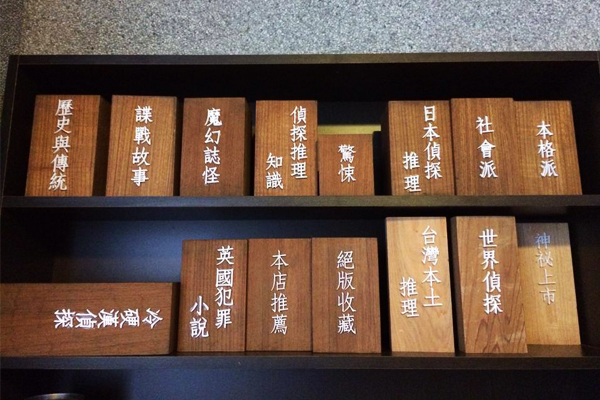 歷史與傳統
諜戰故事
魔幻誌怪
偵探推理
知識
驚悚
日本偵探
推理
社會派
本格派
冷硬漢偵探
英國犯罪
小說
本店推薦
絕版收藏
台灣本土
推理
世界偵探
神秘上市